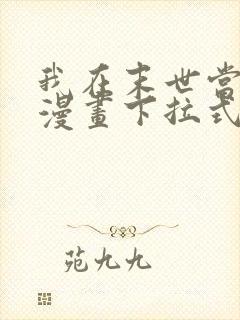 我在末世當
漫畫下拉式
苑九九